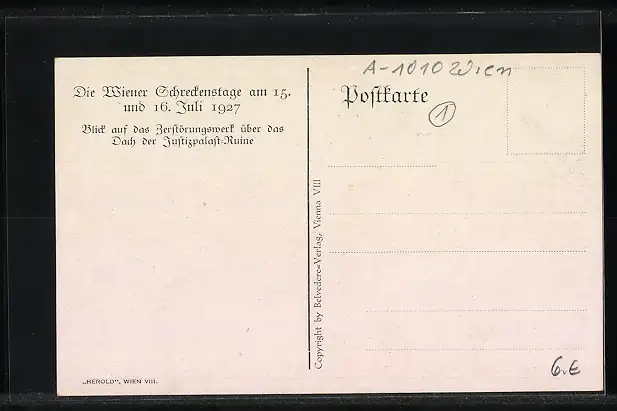 Die Wiener Schreckenstage am 15.
und 16. Juli 1927
Blick auf das Zerstörungswerk über das
Dach der Justizpalast-Ruine
„HEROLD“, WIEN VIII.
Copyright by Belvedere=Verlag, Vienna VIII
A-1010 Wien
Postkarte
1
6.E